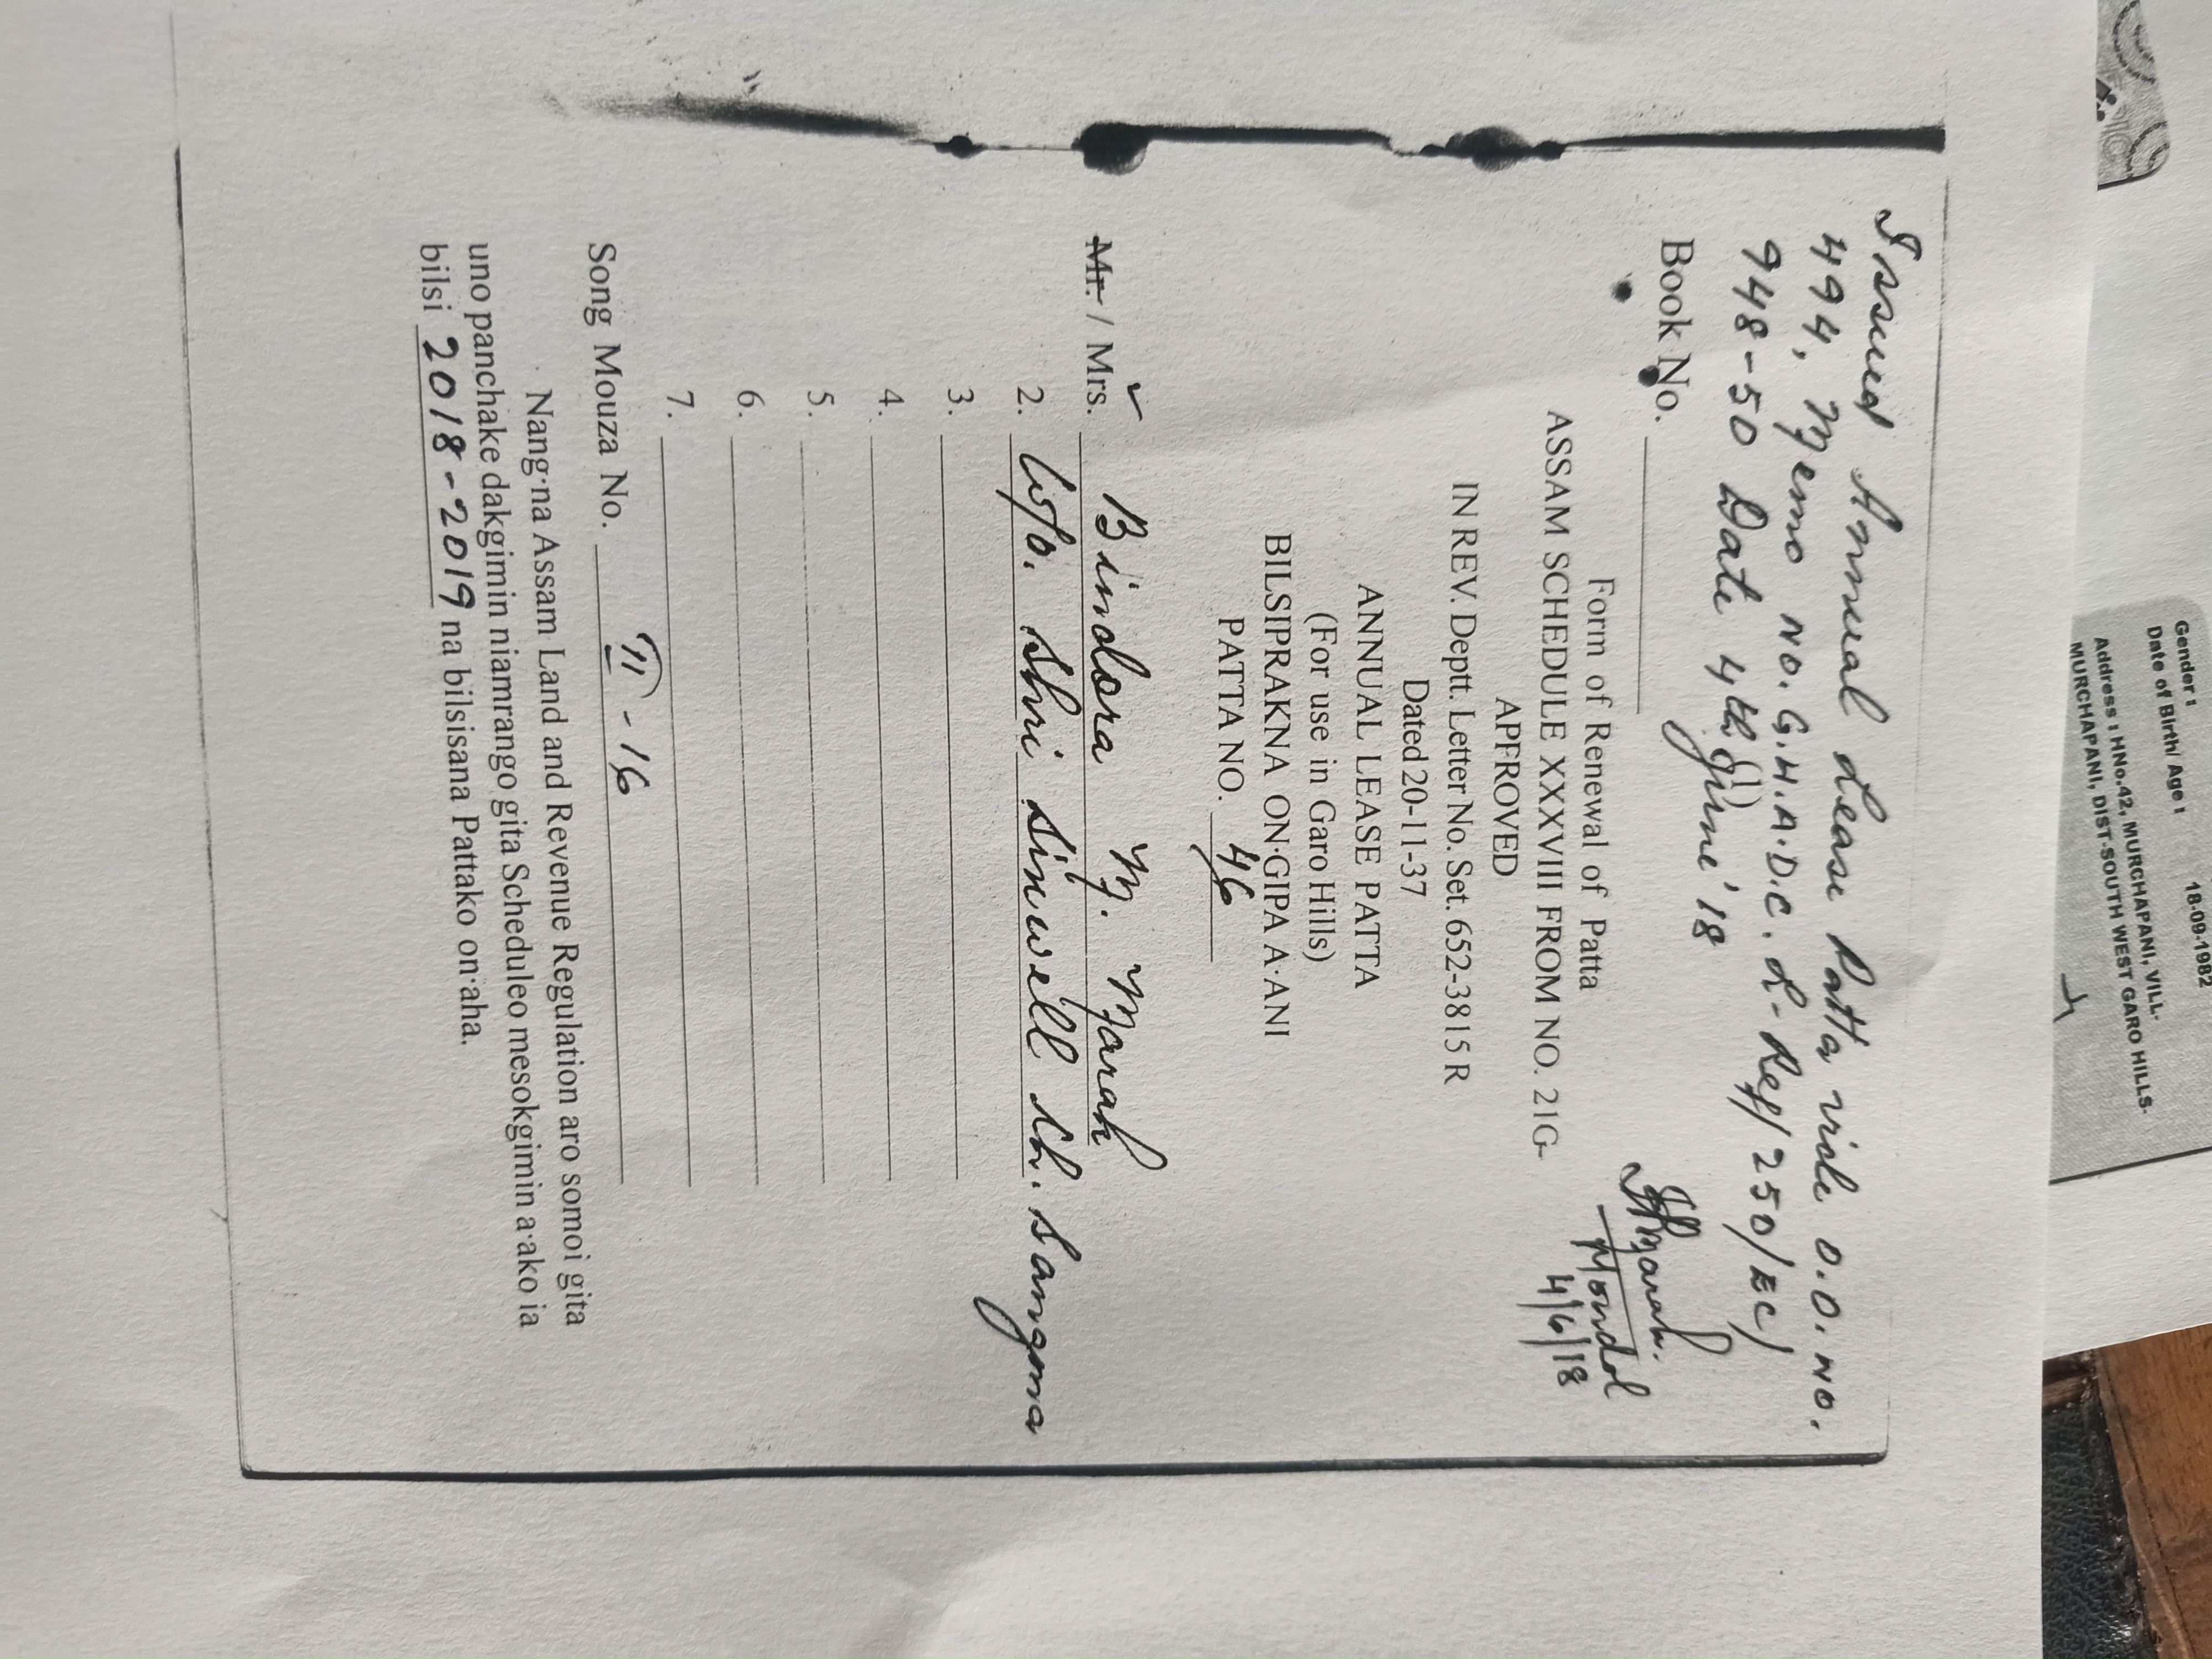 Issued Annual Lease Patta vide O.O. NO.
494, Memo NO. G.H.A.D.C. R-Ref/250/EC/
948-50 Date 4th (1) June '18
Book No.
Marak.
Mondol
4/6/18
Form of Renewal of Patta
ASSAM SCHEDULE XXXVIII FROM NO. 21G-
APFROVED
IN REV. Deptt. Letter No. Set. 652-3815 R
Dated 20-11-37
ANNUAL LEASE PATTA
(For use in Garo Hills)
BILSIPRAKNA ON·GIPA A·ANI
PATTA NO. 46
Mr. / Mrs. ✓ Bindora M. Marak
2. W/o. Shri Sinwell Ch. Sangma
3.
4.
5.
6.
7.
Song Mouza No. II - 16
Nang·na Assam Land and Revenue Regulation aro somoi gita
uno panchake dakgimin niamrango gita Scheduleo mesokgimin a·ako ia
bilsi 2018-2019 na bilsisana Pattako on·aha.
Gender :
Date of Birth/ Age : 18-09-1982
Address : HNo.42, MURCHAPANI, VILL-
MURCHAPANI, DIST-SOUTH WEST GARO HILLS-